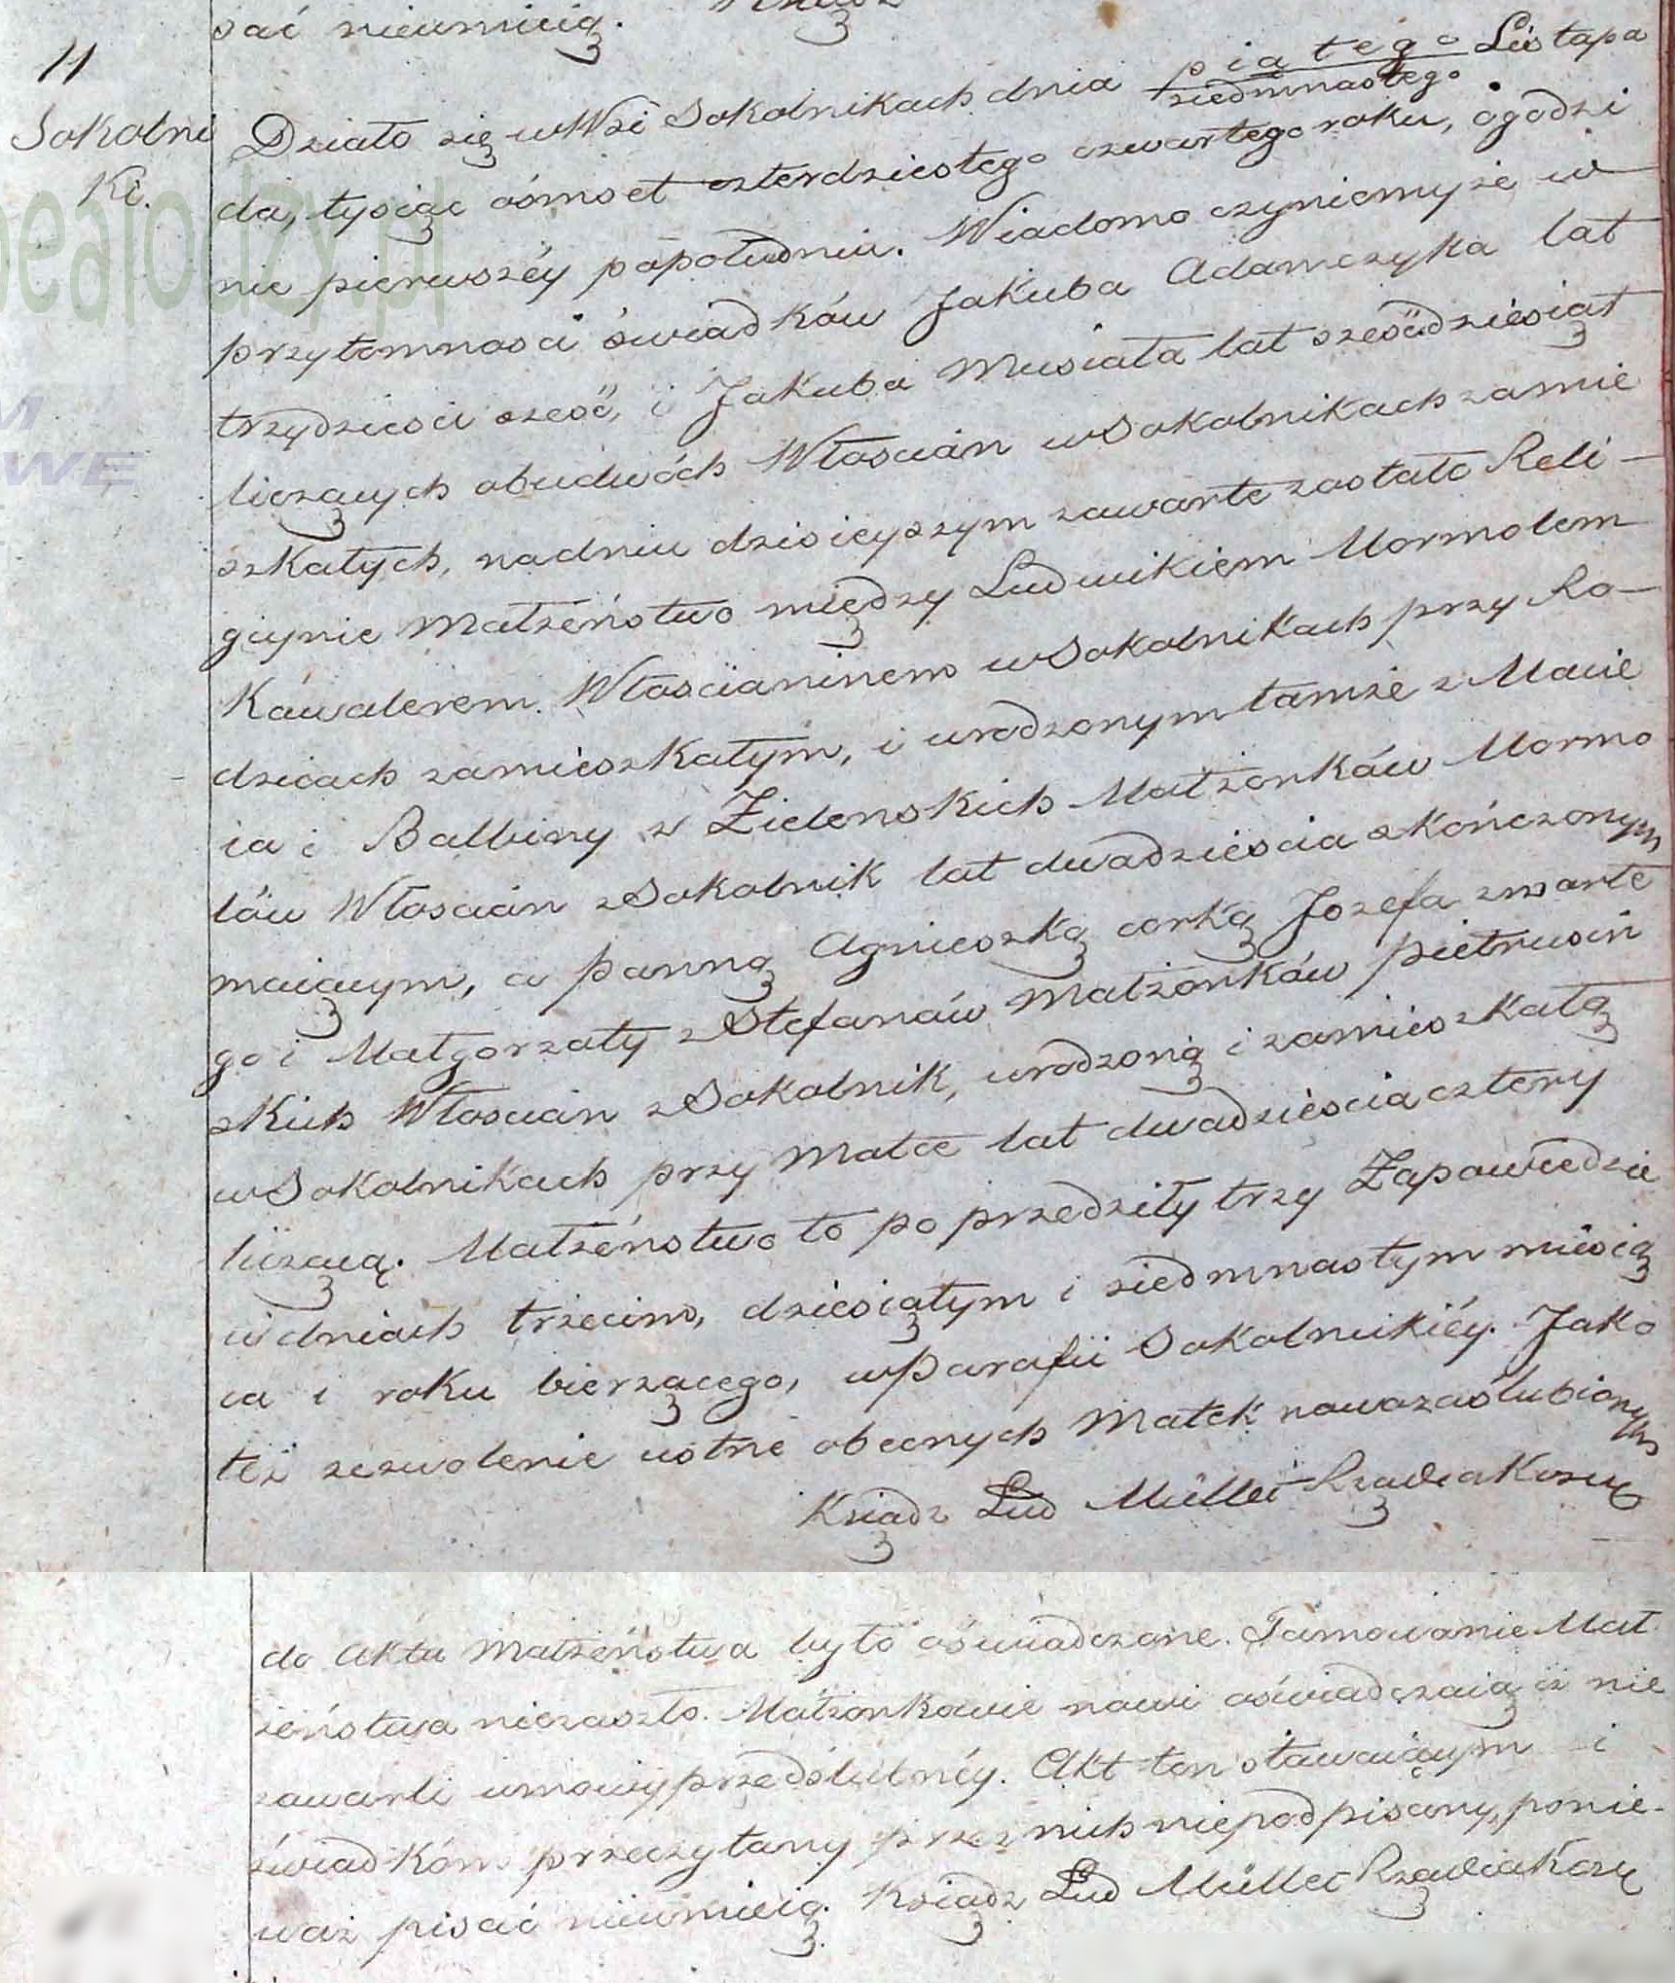 sać nieumieią. Ksiądz
11
Sokolni
ki.
piątego
Działo się w Wsi Sokolnikach dnia siedmnastego Listapa
da, tysiąc ósmset czterdziestego czwartego roku, ogodzi
nie pierwszéy popołudniu. Wiadomo czyniemy że w
przytomności świadków Jakuba Adamczyka lat
trzydzieści sześć, i Jakuba Musiała lat sześćdziesiąt
liczących obudwóch Włościán w Sokolnikach zamie
szkałych, nadniu dzisieyszym zawarte zostało Reli-
giynie Małżeństwo między Ludwikiem Mormolem
Káwalerem Włościaninem w Sokolnikach przy Ro-
dzicach zamieszkałym, i urodzonym tamże z Macie
ia i Balbiny z Zielenskich Małżonków Mormo
lów Włościán z Sokolnik lat dwadzieścia skończonym
maiącym, a Panną Agnieszką corką Jozefa zmarłe
go i Małgorzaty z Stefanów Małżonków Pietrusiń
skich Włościán z Sokolnik, urodzoną i zamieszkałą
w Sokolnikach przy Matce lat dwadzieścia cztery
liczącą. Małżeństwo to poprzedziły trzy Zapowiedzie
w dniach trzecim, dziesiątym i siedmnastym miesią
ca i roku bierzącego, w Parafii Sokolnickiéy. Jako
téż zezwolenie ustne obecnych Matek nowozaślubionych
Ksiądz Lud Müller Rządca Kość
do Aktu Małżeństwa było oświadczone. Tamowanie Mał
żeństwa niezaszło. Małżonkowie nowi oświadczaią iż nie
zawarli umowy przedślubnéy. Akt ten stawaiącym i
świadkóm przeczytany przez nich niepodpisany, ponie-
waż pisać nieumieią. Ksiądz Lud Müller Rządca Kość